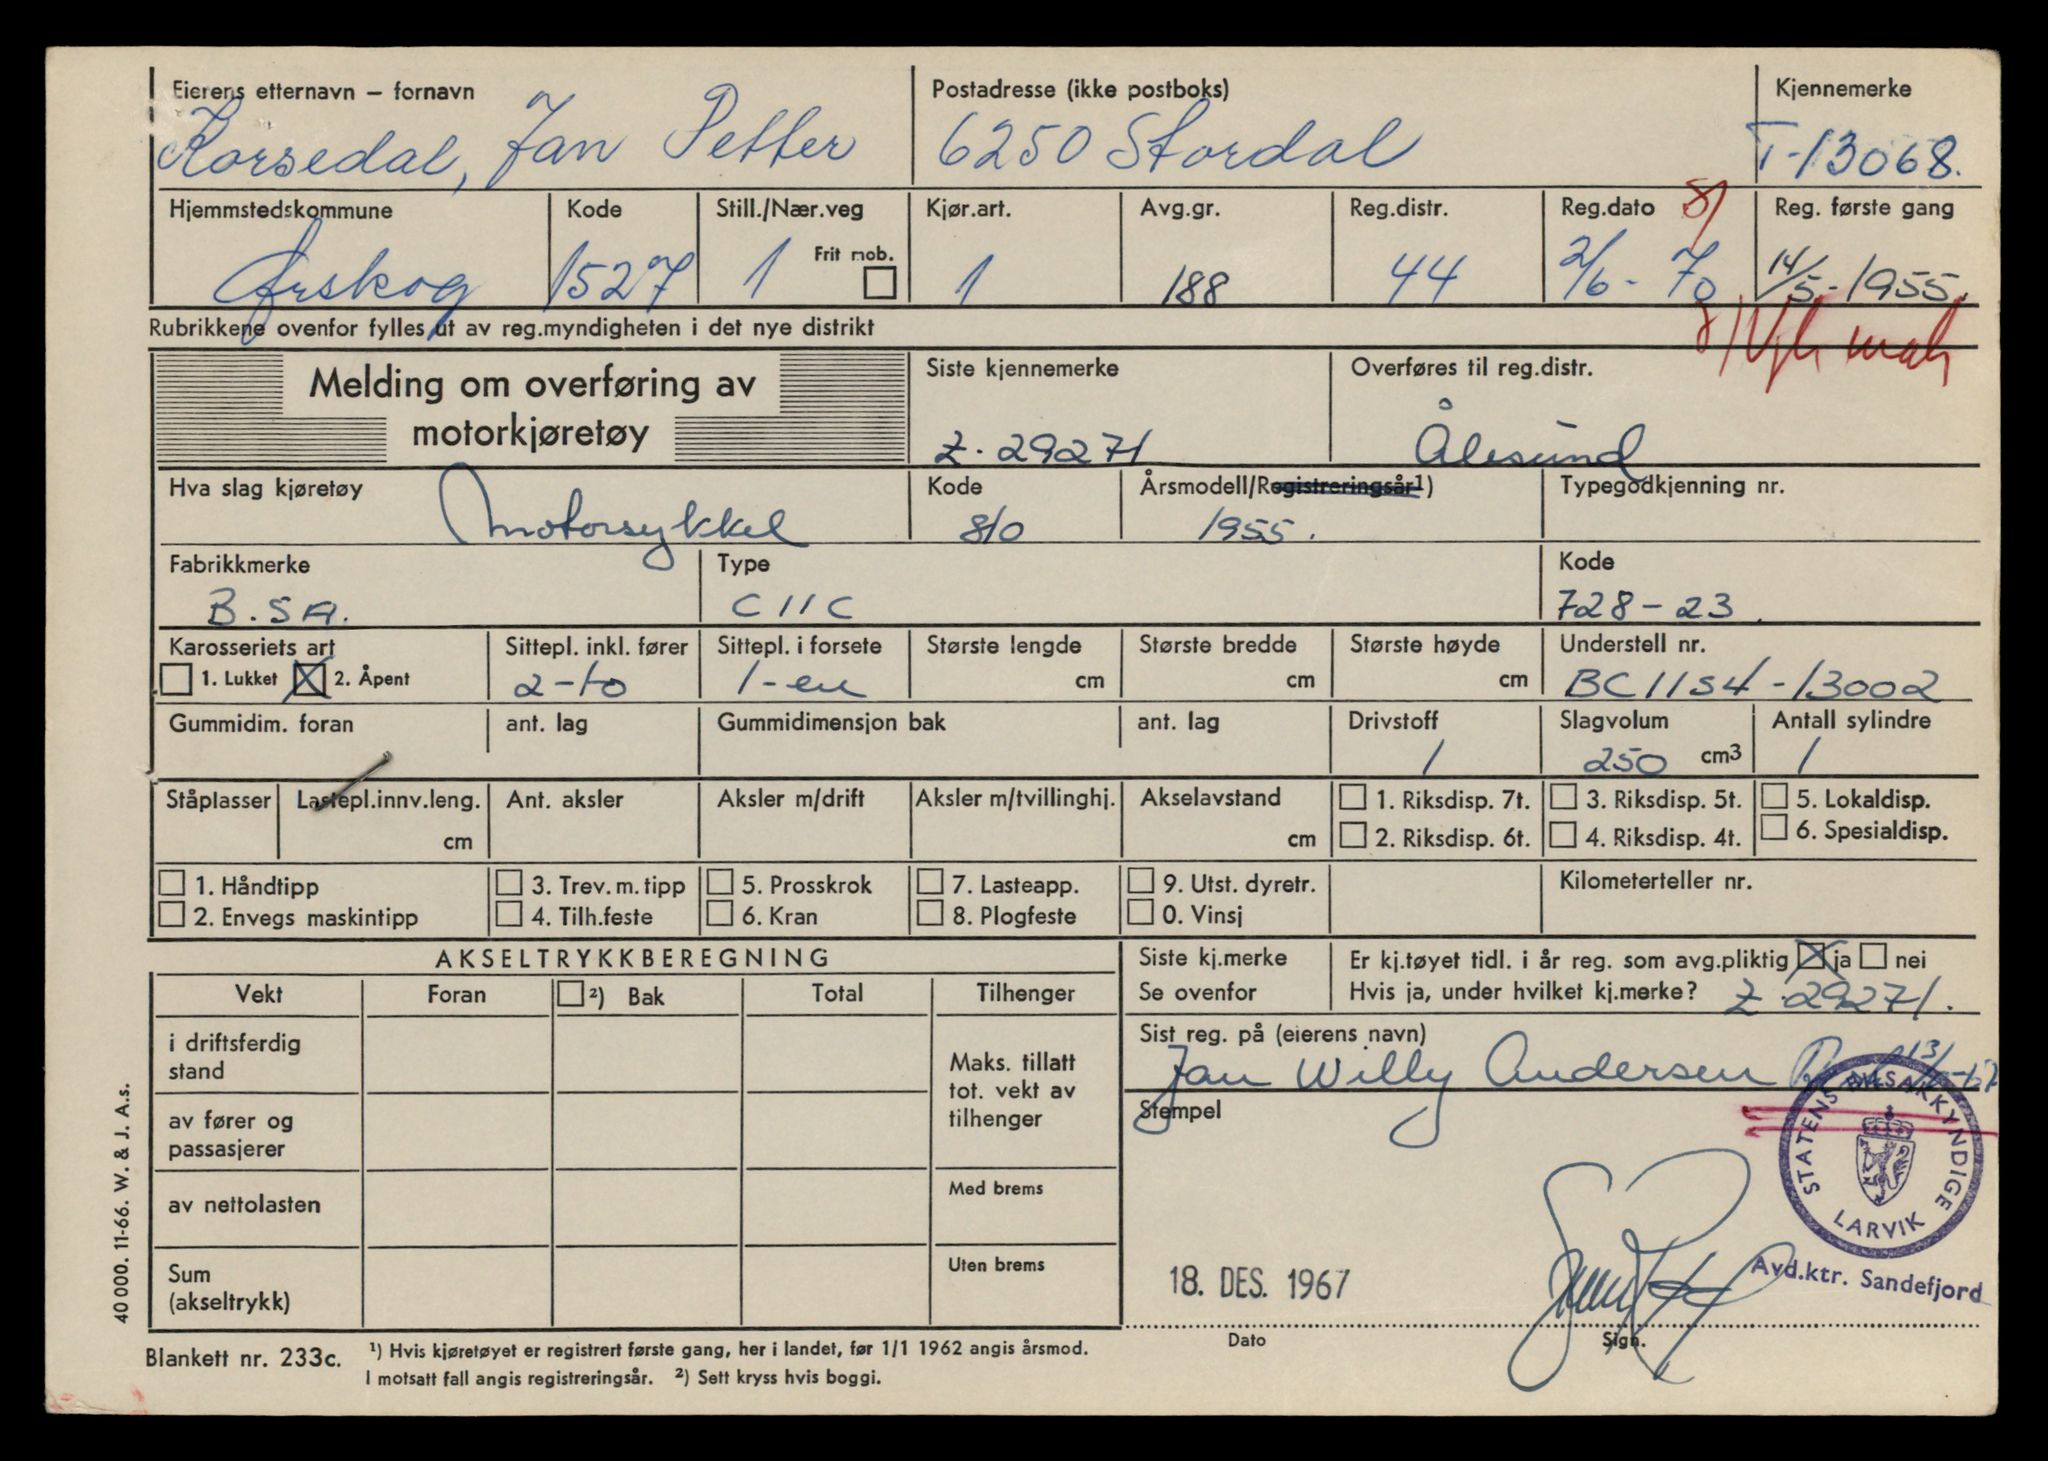 Eierens etternavn – fornavn
Korsedal, Jan Petter
Postadresse (ikke postboks)
6250 Stordal
Kjennemerke
T-13068.
Hjemmstedskommune
Ørskog
Kode
1527
Still./Nær.veg
1
Frit mob.
Kjør.art.
1
Avg.gr.
188
Reg.distr.
44
Reg.dato
8/
2/6-70
Reg. første gang
14/5-1955.
Rubrikkene ovenfor fylles ut av reg.myndigheten i det nye distrikt
Melding om overføring av
motorkjøretøy
Siste kjennemerke
Z-29271
Overføres til reg.distr.
Ålesund
Hva slag kjøretøy
Motorsykkel
Kode
810
Årsmodell/Registreringsår1)
1955.
Typegodkjenning nr.
Fabrikkmerke
B.S.A.
Type
C11C
Kode
728-23.
Karosseriets art
1. Lukket
2. Åpent
Sittepl. inkl. fører
2-to
Sittepl. i forsete
1-en
Største lengde
cm
Største bredde
cm
Største høyde
cm
Understell nr.
BC11S4-13002
Gummidim. foran
ant. lag
Gummidimensjon bak
ant. lag
Drivstoff
1
Slagvolum
250 cm3
Antall sylindre
1
Ståplasser
Lastepl.innv.leng.
cm
Ant. aksler
Aksler m/drift
Aksler m/tvillinghj.
Akselavstand
cm
1. Riksdisp. 7t.
2. Riksdisp. 6t.
3. Riksdisp. 5t.
4. Riksdisp. 4t.
5. Lokaldisp.
6. Spesialdisp.
1. Håndtipp
2. Envegs maskintipp
3. Trev. m. tipp
4. Tilh.feste
5. Prosskrok
6. Kran
7. Lasteapp.
8. Plogfeste
9. Utst. dyretr.
0. Vinsj
Kilometerteller nr.
AKSELTRYKKBEREGNING
Vekt
Foran
2) Bak
Total
Tilhenger
i driftsferdig
stand
av fører og
passasjerer
av nettolasten
Sum
(akseltrykk)
Maks. tillatt
tot. vekt av
tilhenger
Med brems
Uten brems
Siste kj.merke
Se ovenfor
Er kj.tøyet tidl. i år reg. som avg.pliktig ja nei
Hvis ja, under hvilket kj.merke? Z-29271.
Sist reg. på (eierens navn)
Jan Willy Andersen
Stempel
STATENS BILSAKKYNDIGE
LARVIK
Avd.ktr. Sandefjord
18. DES. 1967
Dato
Sign.
40 000. 11-66. W. & J. A.s.
Blankett nr. 233c.
1) Hvis kjøretøyet er registrert første gang, her i landet, før 1/1 1962 angis årsmod.
I motsatt fall angis registreringsår. 2) Sett kryss hvis boggi.